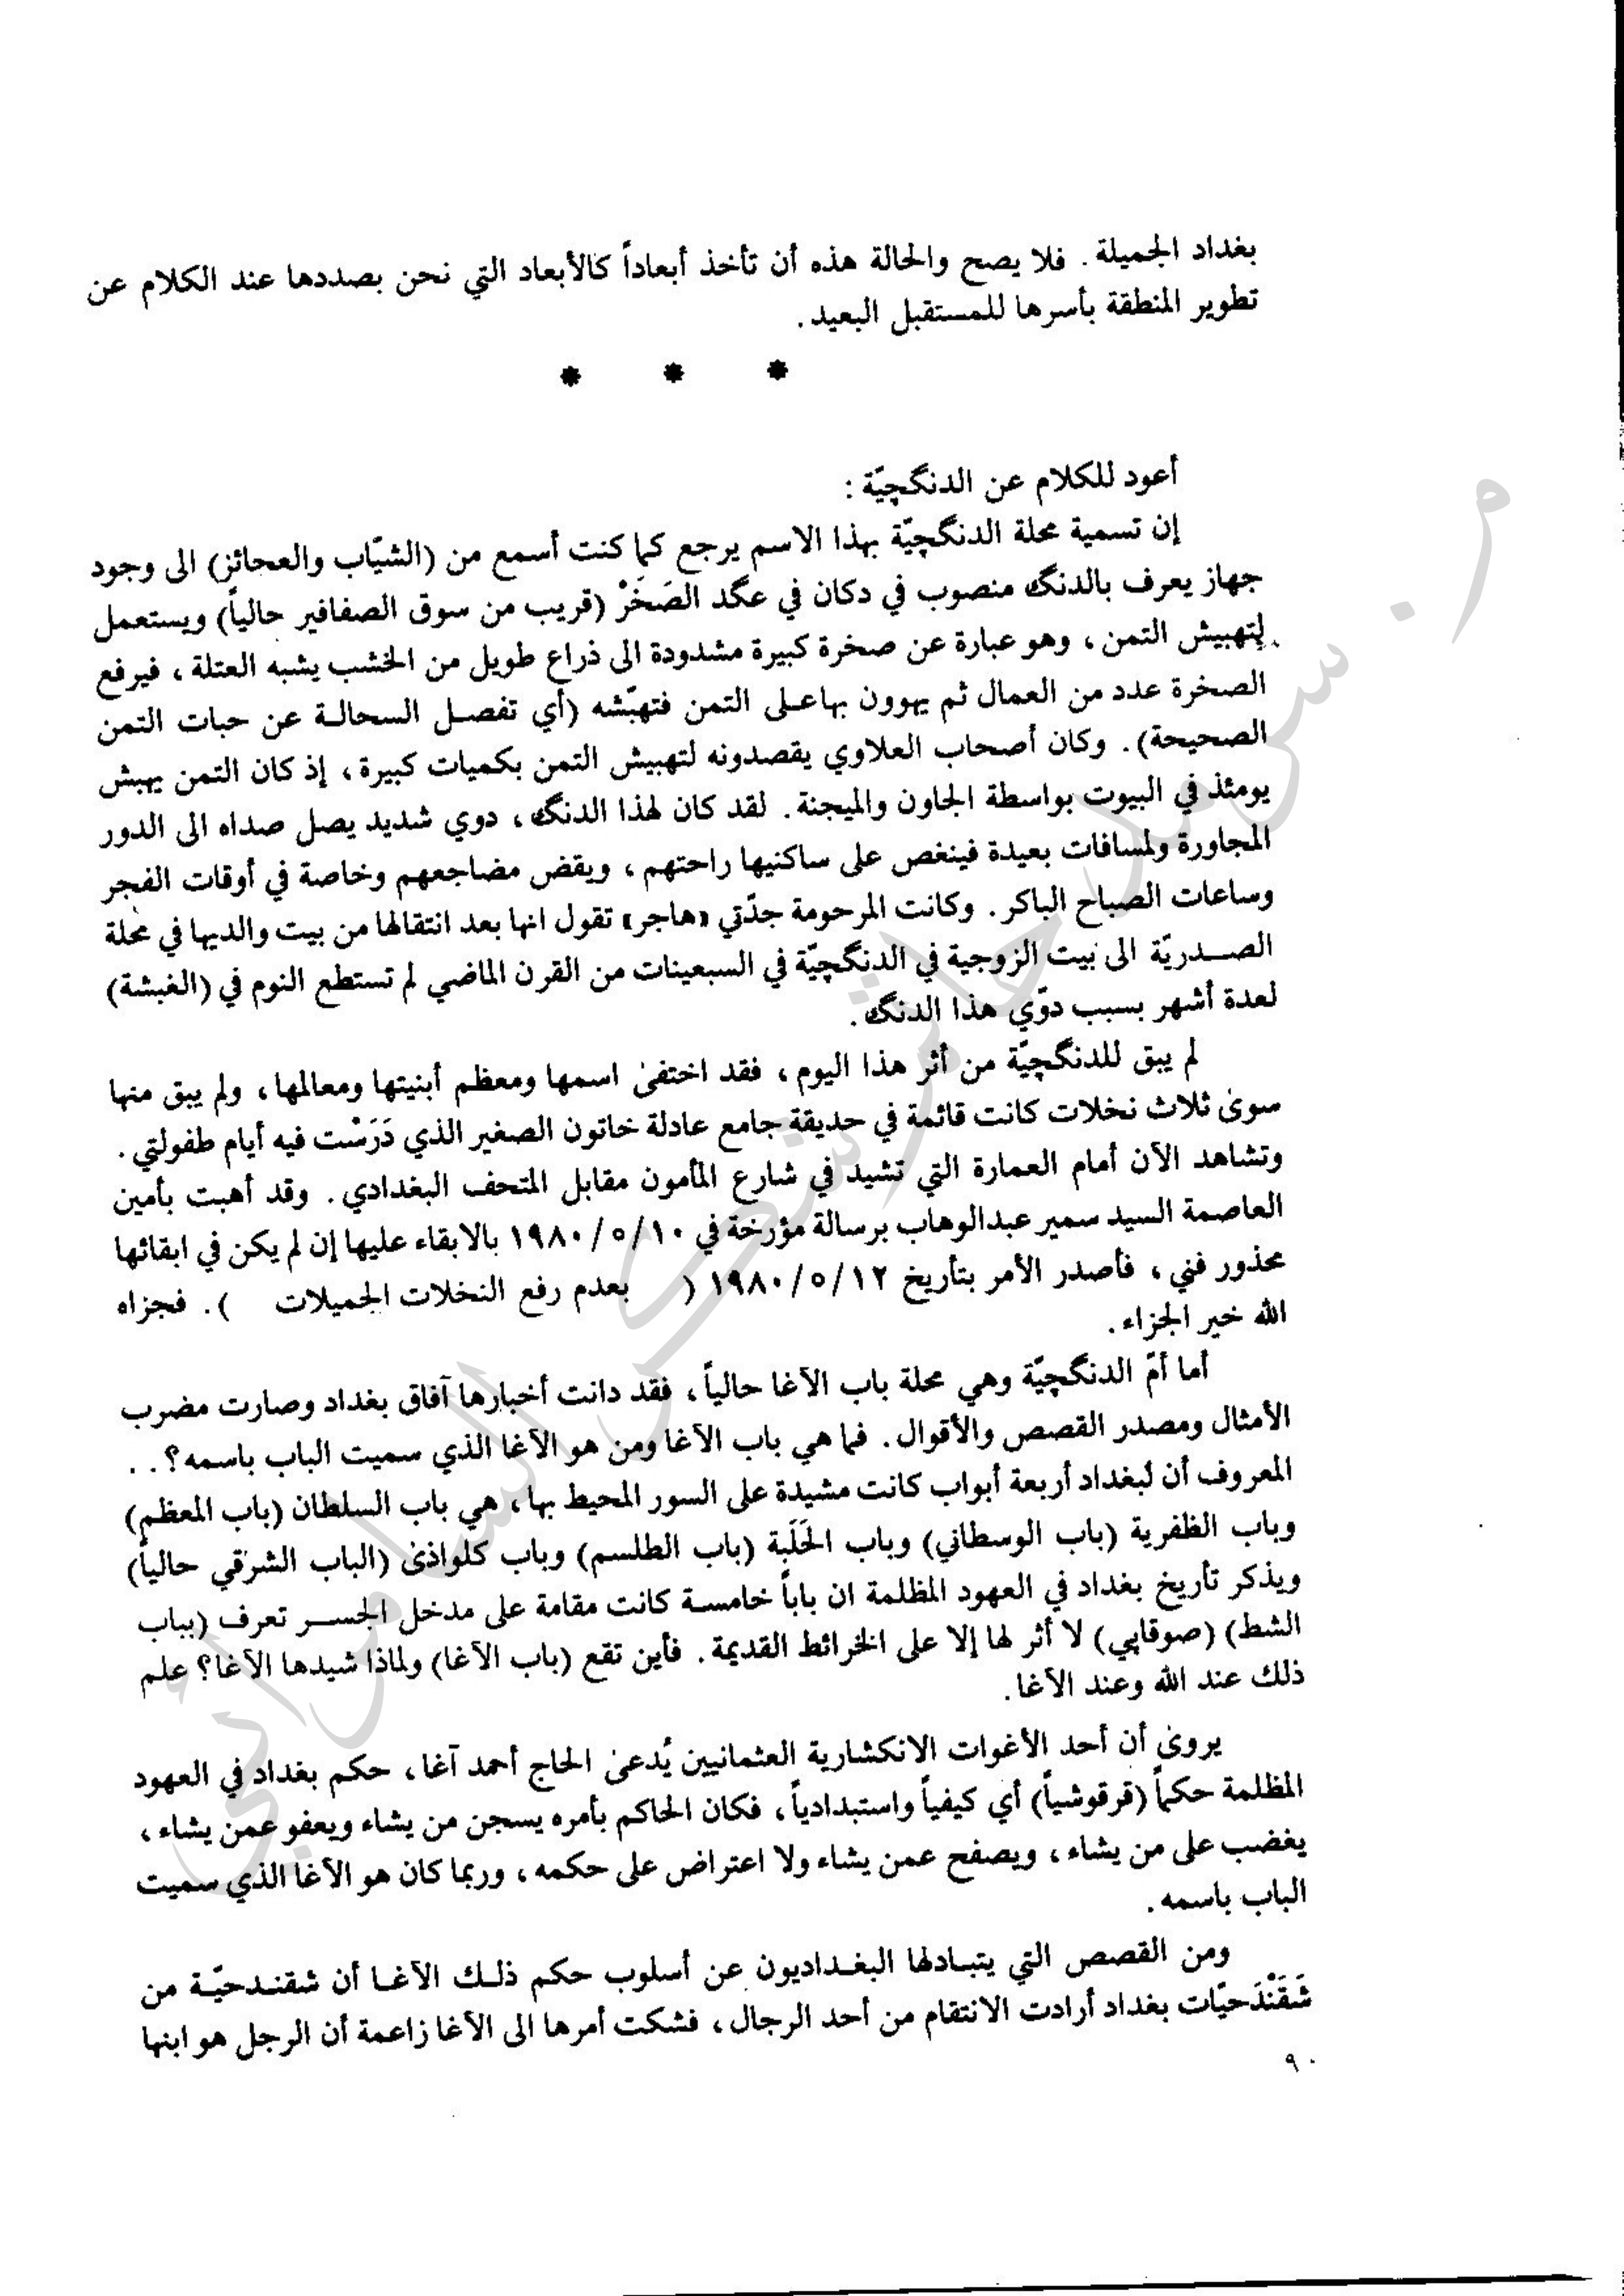 بغداد الجميلة. فلا يصح والحالة هذه أن تأخذ أبعاداً كالأبعاد التي نحن بصددها عند الكلام عن
تطوير المنطقة بأسرها للمستقبل البعيد.
* * *
أعود للكلام عن الدنگچيّة :
إن تسمية محلة الدنگچيّة بهذا الاسم يرجع كما كنت أسمع من (الشيّاب والعجائز) الى وجود
جهاز يعرف بالدنگ منصوب في دكان في عگد الصَخَرْ (قريب من سوق الصفافير حالياً) ويستعمل
لِتهبيش التمن ، وهو عبارة عن صخرة كبيرة مشدودة الى ذراع طويل من الخشب يشبه العتلة ، فيرفع
الصخرة عدد من العمال ثم يهوون بهاعلى التمن فتهبّشه (أي تفصل السحالة عن حبات التمن
الصحيحة). وكان أصحاب العلاوي يقصدونه لتهبيش التمن بكميات كبيرة ، إذ كان التمن يهبش
يومئذ في البيوت بواسطة الجاون والميجنة. لقد كان لهذا الدنگ ، دوي شديد يصل صداه الى الدور
المجاورة ولمسافات بعيدة فينغص على ساكنيها راحتهم ، ويقض مضاجعهم وخاصة في أوقات الفجر
وساعات الصباح الباكر. وكانت المرحومة جدّتي «هاجر» تقول انها بعد انتقالها من بيت والديها في محلة
الصدريّة الى بيت الزوجية في الدنگچيّة في السبعينات من القرن الماضي لم تستطع النوم في (الغبشة)
لعدة أشهر بسبب دوّي هذا الدنگ.
لم يبق للدنگچيّة من أثر هذا اليوم ، فقد اختفىٰ اسمها ومعظم أبنيتها ومعالمها ، ولم يبق منها
سوىٰ ثلاث نخلات كانت قائمة في حديقة جامع عادلة خاتون الصغير الذي دَرَسْت فيه أيام طفولتي.
وتشاهد الآن أمام العمارة التي تشيد في شارع المأمون مقابل المتحف البغدادي. وقد أهبت بأمين
العاصمة السيد سمير عبدالوهاب برسالة مؤرخة في ١٠/٥/١٩٨٠ بالابقاء عليها إن لم يكن في ابقائها
محذور فني ، فأصدر الأمر بتأريخ ١٢/٥/١٩٨٠ ( بعدم رفع النخلات الجميلات ). فجزاه
الله خير الجزاء.
أما أمّ الدنگچيّة وهي محلة باب الآغا حالياً ، فقد دانت أخبارها آفاق بغداد وصارت مضرب
الأمثال ومصدر القصص والأقوال. فما هي باب الآغا ومن هو الآغا الذي سميت الباب باسمه؟..
المعروف أن لبغداد أربعة أبواب كانت مشيدة على السور المحيط بها ، هي باب السلطان (باب المعظم)
وباب الظفرية (باب الوسطاني) وباب الحَلَبة (باب الطلسم) وباب كلواذىٰ (الباب الشرقي حالياً)
ويذكر تأريخ بغداد في العهود المظلمة ان باباً خامسة كانت مقامة على مدخل الجسر تعرف (بباب
الشط) (صوقاپي) لا أثر لها إلا على الخرائط القديمة. فأين تقع (باب الآغا) ولماذا شيدها الآغا؟ علم
ذلك عند الله وعند الآغا.
يروىٰ أن أحد الأغوات الانكشارية العثمانيين يُدعىٰ الحاج أحمد آغا ، حكم بغداد في العهود
المظلمة حكماً (قرقوشياً) أي كيفياً واستبدادياً ، فكان الحاكم بأمره يسجن من يشاء ويعفو عمن يشاء ،
يغضب على من يشاء ، ويصفح عمن يشاء ولا اعتراض على حكمه ، وربما كان هو الآغا الذي سميت
الباب باسمه.
ومن القصص التي يتبادلها البغداديون عن أسلوب حكم ذلك الآغا أن شقندحيّة من
شَقَنْدَحيّات بغداد أرادت الانتقام من أحد الرجال ، فشكت أمرها الى الآغا زاعمة أن الرجل هو ابنها
٩٠